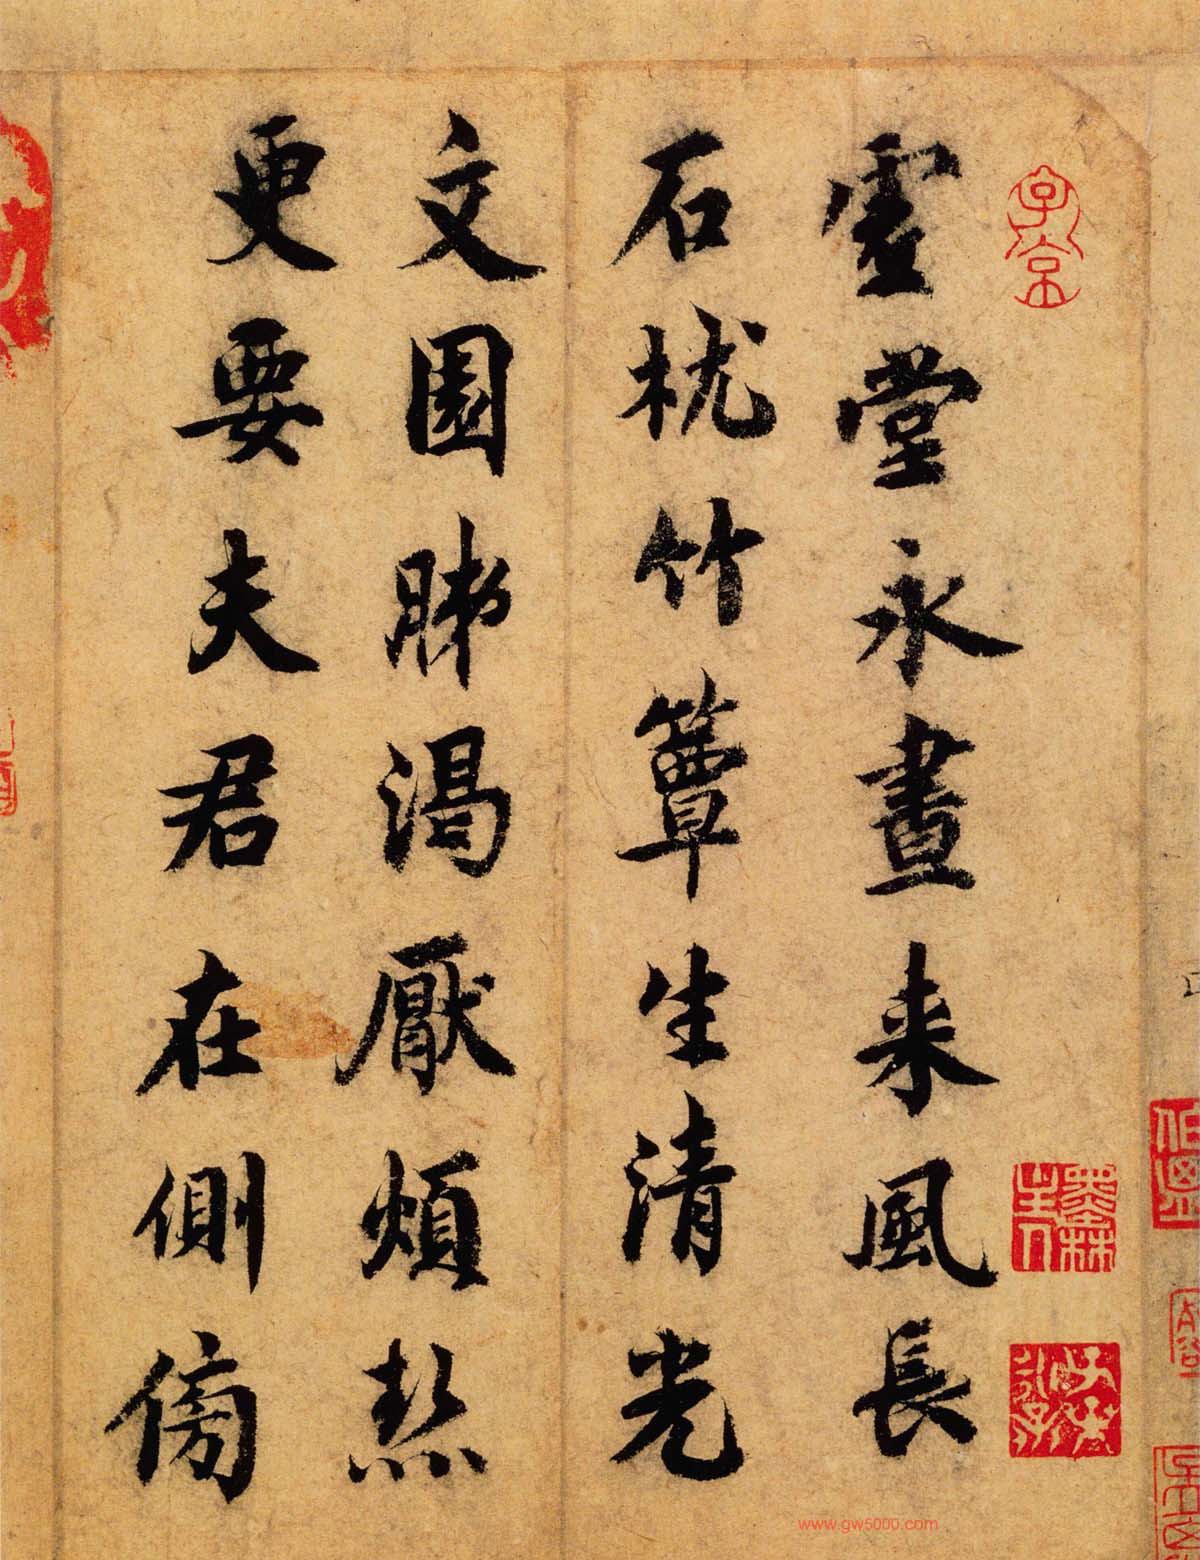 虛堂永晝来風長
石枕竹簟生清光
文園肺渴厭煩熱
更要夫君在側傍
子京
墨林山人
www.gw5000.com